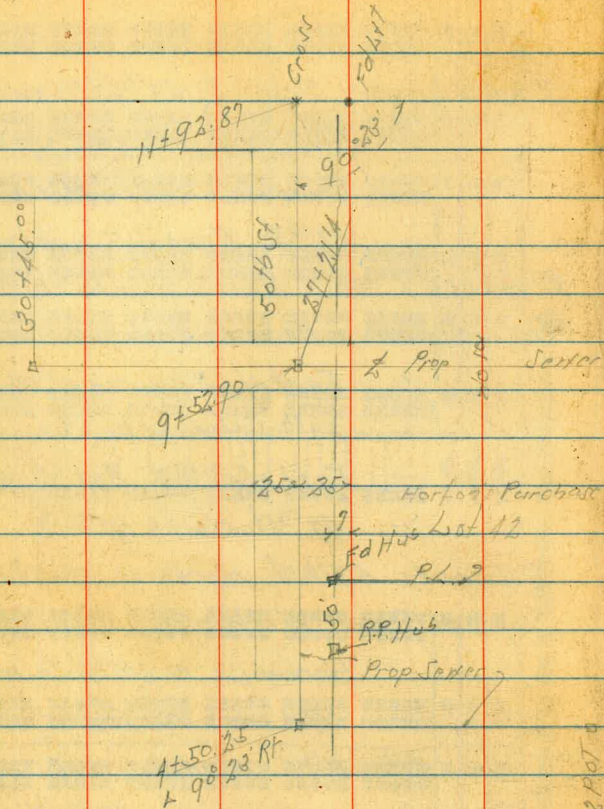 Cross
Fd L&T
11+92.87
90°23'
30+45.00
50th St.
27+21.4
℄ Prop Sewer
9+52.90
25 25
Horton's Purchase
Lot 12
Fd Hub
P.L.?
50'
R.P. Hub
Prop Sewer
4+50.25
90°23' Rt.